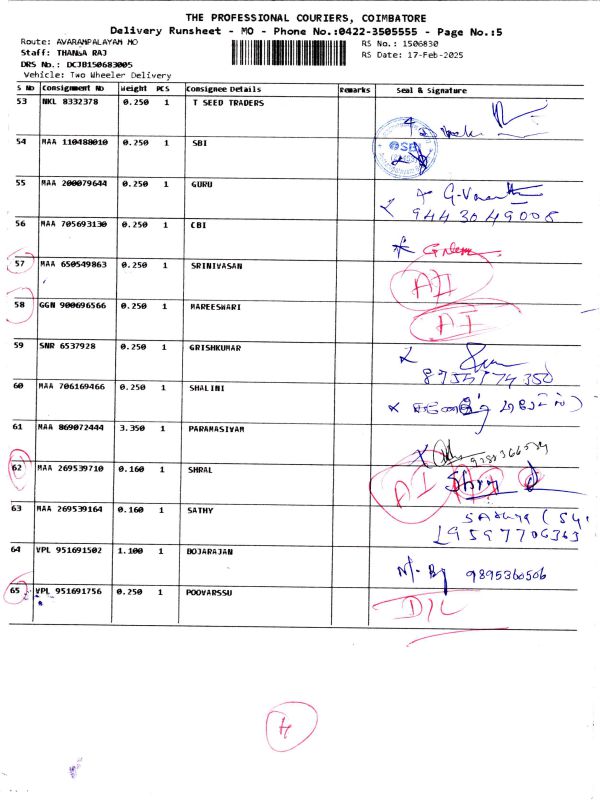 THE PROFESSIONAL COURIERS, COIMBATORE
Delivery Runsheet - MO - Phone No.:0422-3505555 - Page No.:5
Route: AVARAMPALAYAM MO
RS No.: 1506830
Staff: THANGA RAJ
RS Date: 17-Feb-2025
DRS No.: DCJB150683005
Vehicle: Two Wheeler Delivery
S No Consignment No Weight PCS Consignee Details Remarks Seal & Signature
53 NKL 8332378 0.250 1 T SEED TRADERS
54 MAA 110488010 0.250 1 SBI
SBI
55 MAA 200079644 0.250 1 GURU
9443049008
56 MAA 705693130 0.250 1 CBI
57 MAA 650549863 0.250 1 SRINIVASAN
58 GGN 900696566 0.250 1 MAREESWARI
AI
59 SNR 6537928 0.250 1 GRISHKUMAR
60 MAA 706169466 0.250 1 SHALINI
61 MAA 869072444 3.350 1 PARAMASIVAM
62 MAA 269539710 0.160 1 SHRAL
AI
63 MAA 269539164 0.160 1 SATHY
9597706363
64 VPL 951691502 1.100 1 BOJARAJAN
9895360506
65 VPL 951691756 0.250 1 POOVARSSU
D/L
4